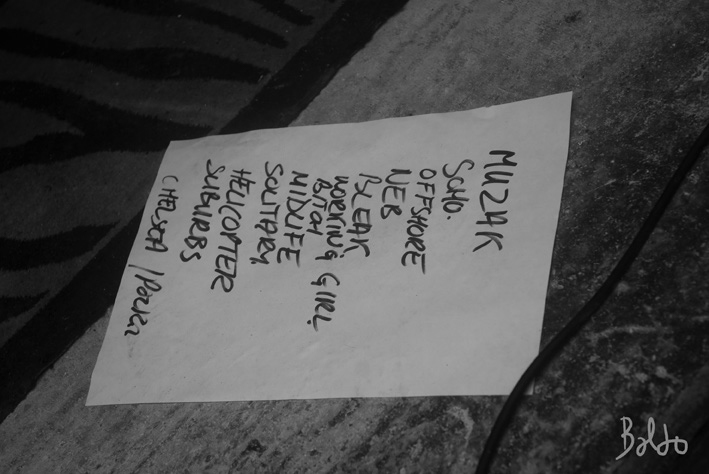 MUZAK
SCHO.
OFFSHORE
NEB
BLEAK
WORKING GIRL!
BITCH
MIDLIFE
SOLITARY
HELICOPTER
SUBURBS
CHELSEA /
Baldo